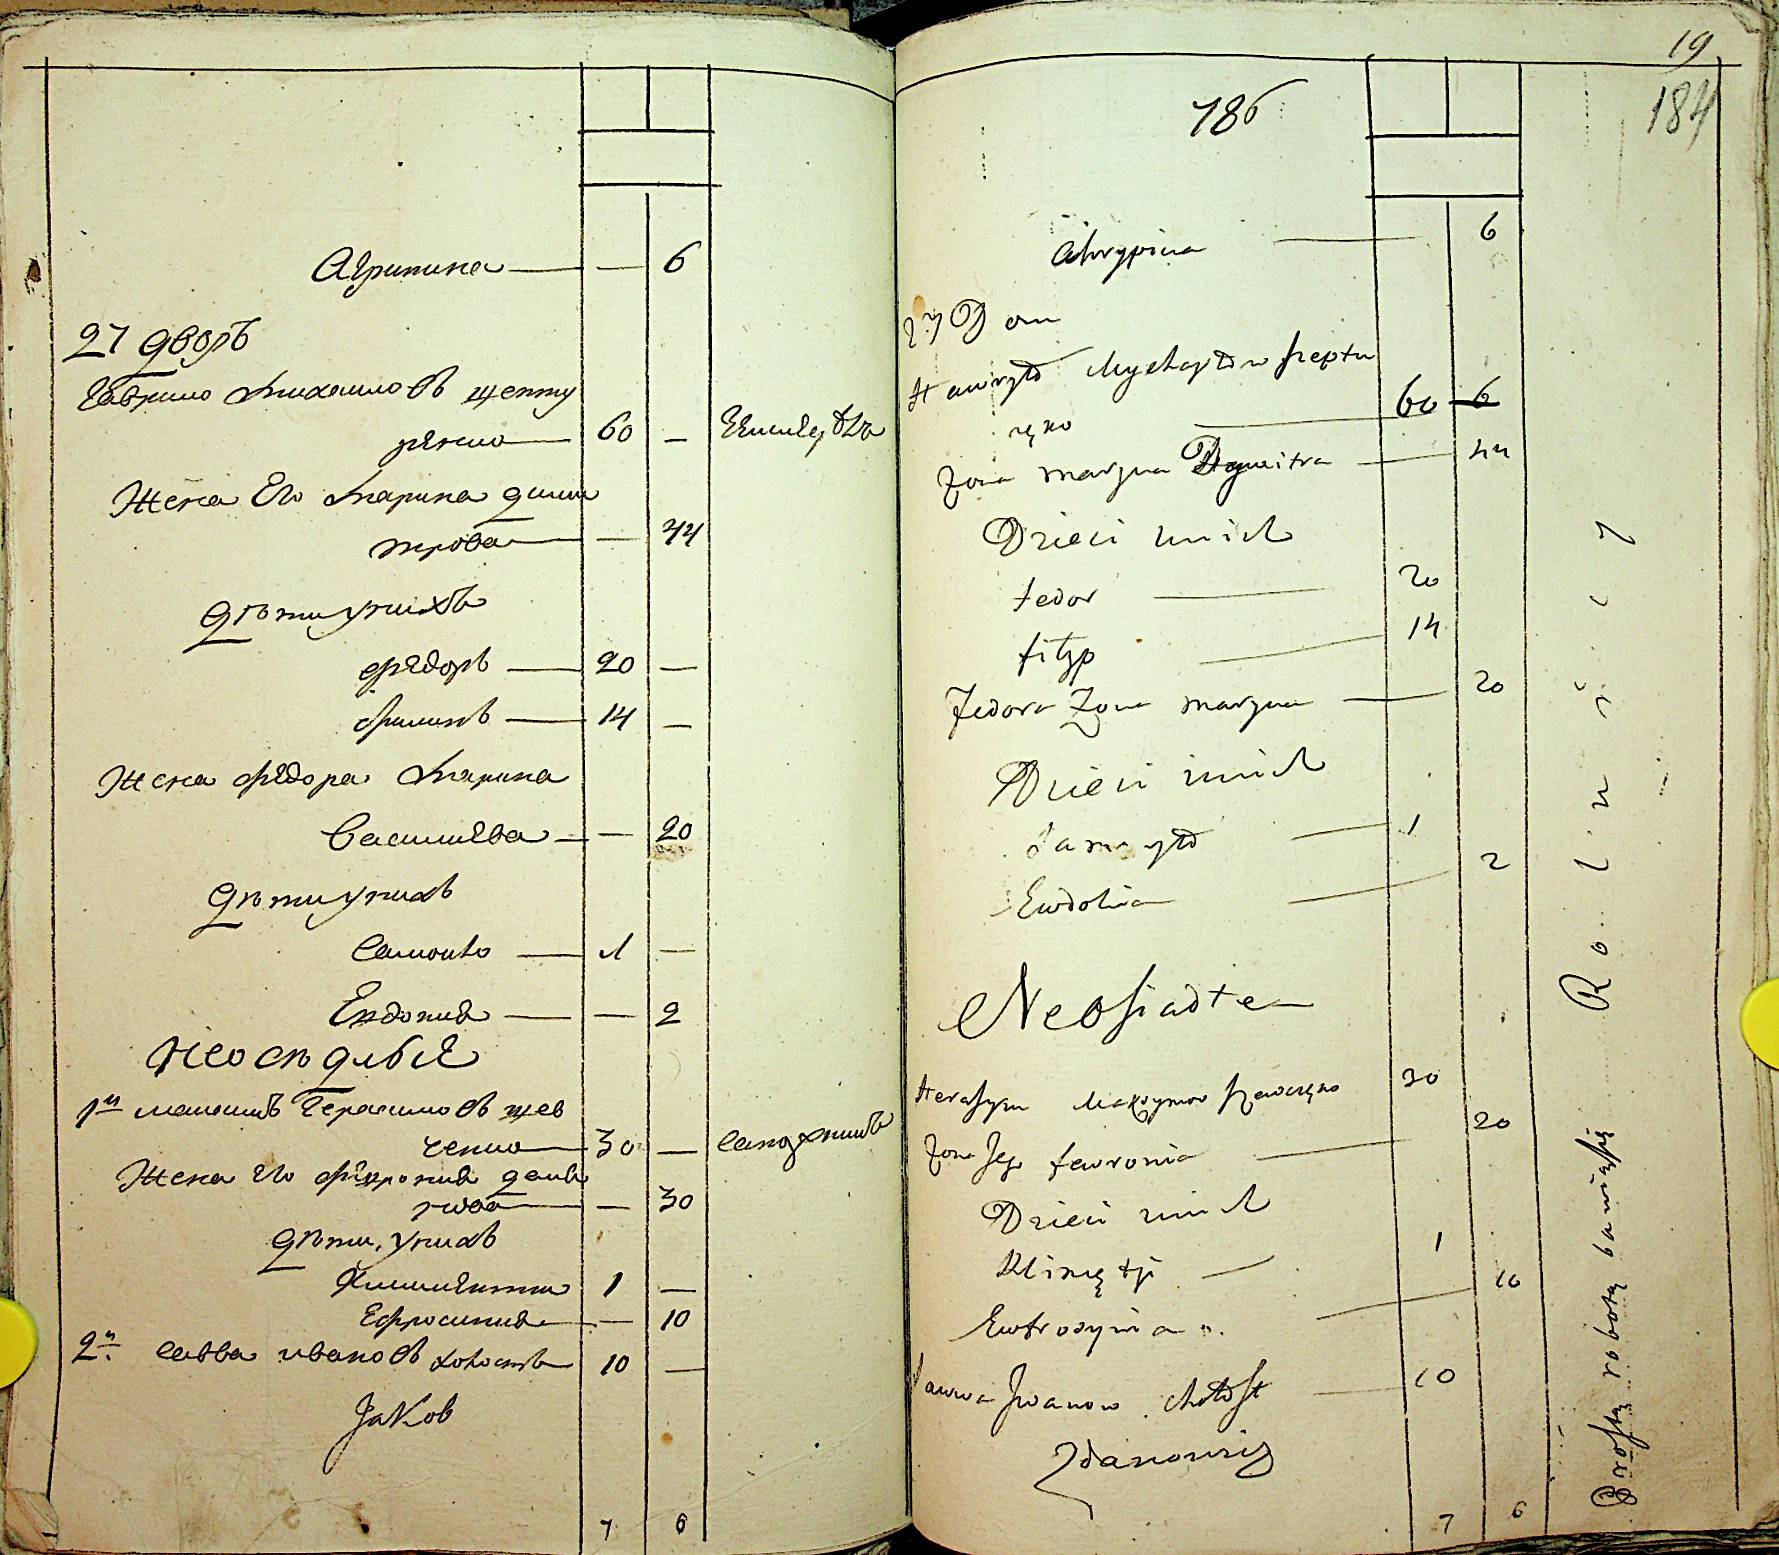 Агрипина — — 6
27 дворъ
Гаврило Михаиловъ щепту
ренко — 60 —
Жена Его Марина дими
трова — — 44
дѣти унихъ
Фёдоръ — 20 —
Филипъ — 14 —
Жена Фёдора Марина
Василиева — — 20
дѣти унихъ
Самоило — 1 —
Евдокия — — 2
Неоседлые
1й Герасимовъ шев
ченко — 30 —
Жена Его Феврония
— 30
дѣти унихъ
1 —
Ефросиния — — 10
2й Савва Ивановъ холостъ 10 —
Jakob
7 6
19
184
186
Ahrypina — 6
27 Dom
Hawryło Mychayłow szeptu
ręko — 60 6
Żona maryna Dymitra — 44
Dzieci unich
fedor — 20
filyp — 14
Fedora Żona maryna — 20
Dzieci unich
Samoyło — 1
Ewdokia — 2
Neosiadłe
Herasym Maxymow szewczęko 30
Żona Jego fewronia — 20
Dzieci unich
Klimętji — 1
Ewfrosynia — 10
Sawwa Iwanow chołost — 10
Zdanowicz
7 6
Prostą robotą bawięsię Rolniczy